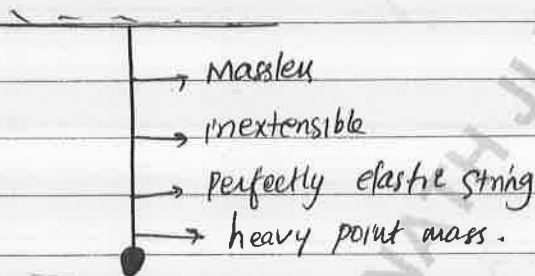 Massless
inextensible
perfectly elastic string
heavy point mass.
NATH J